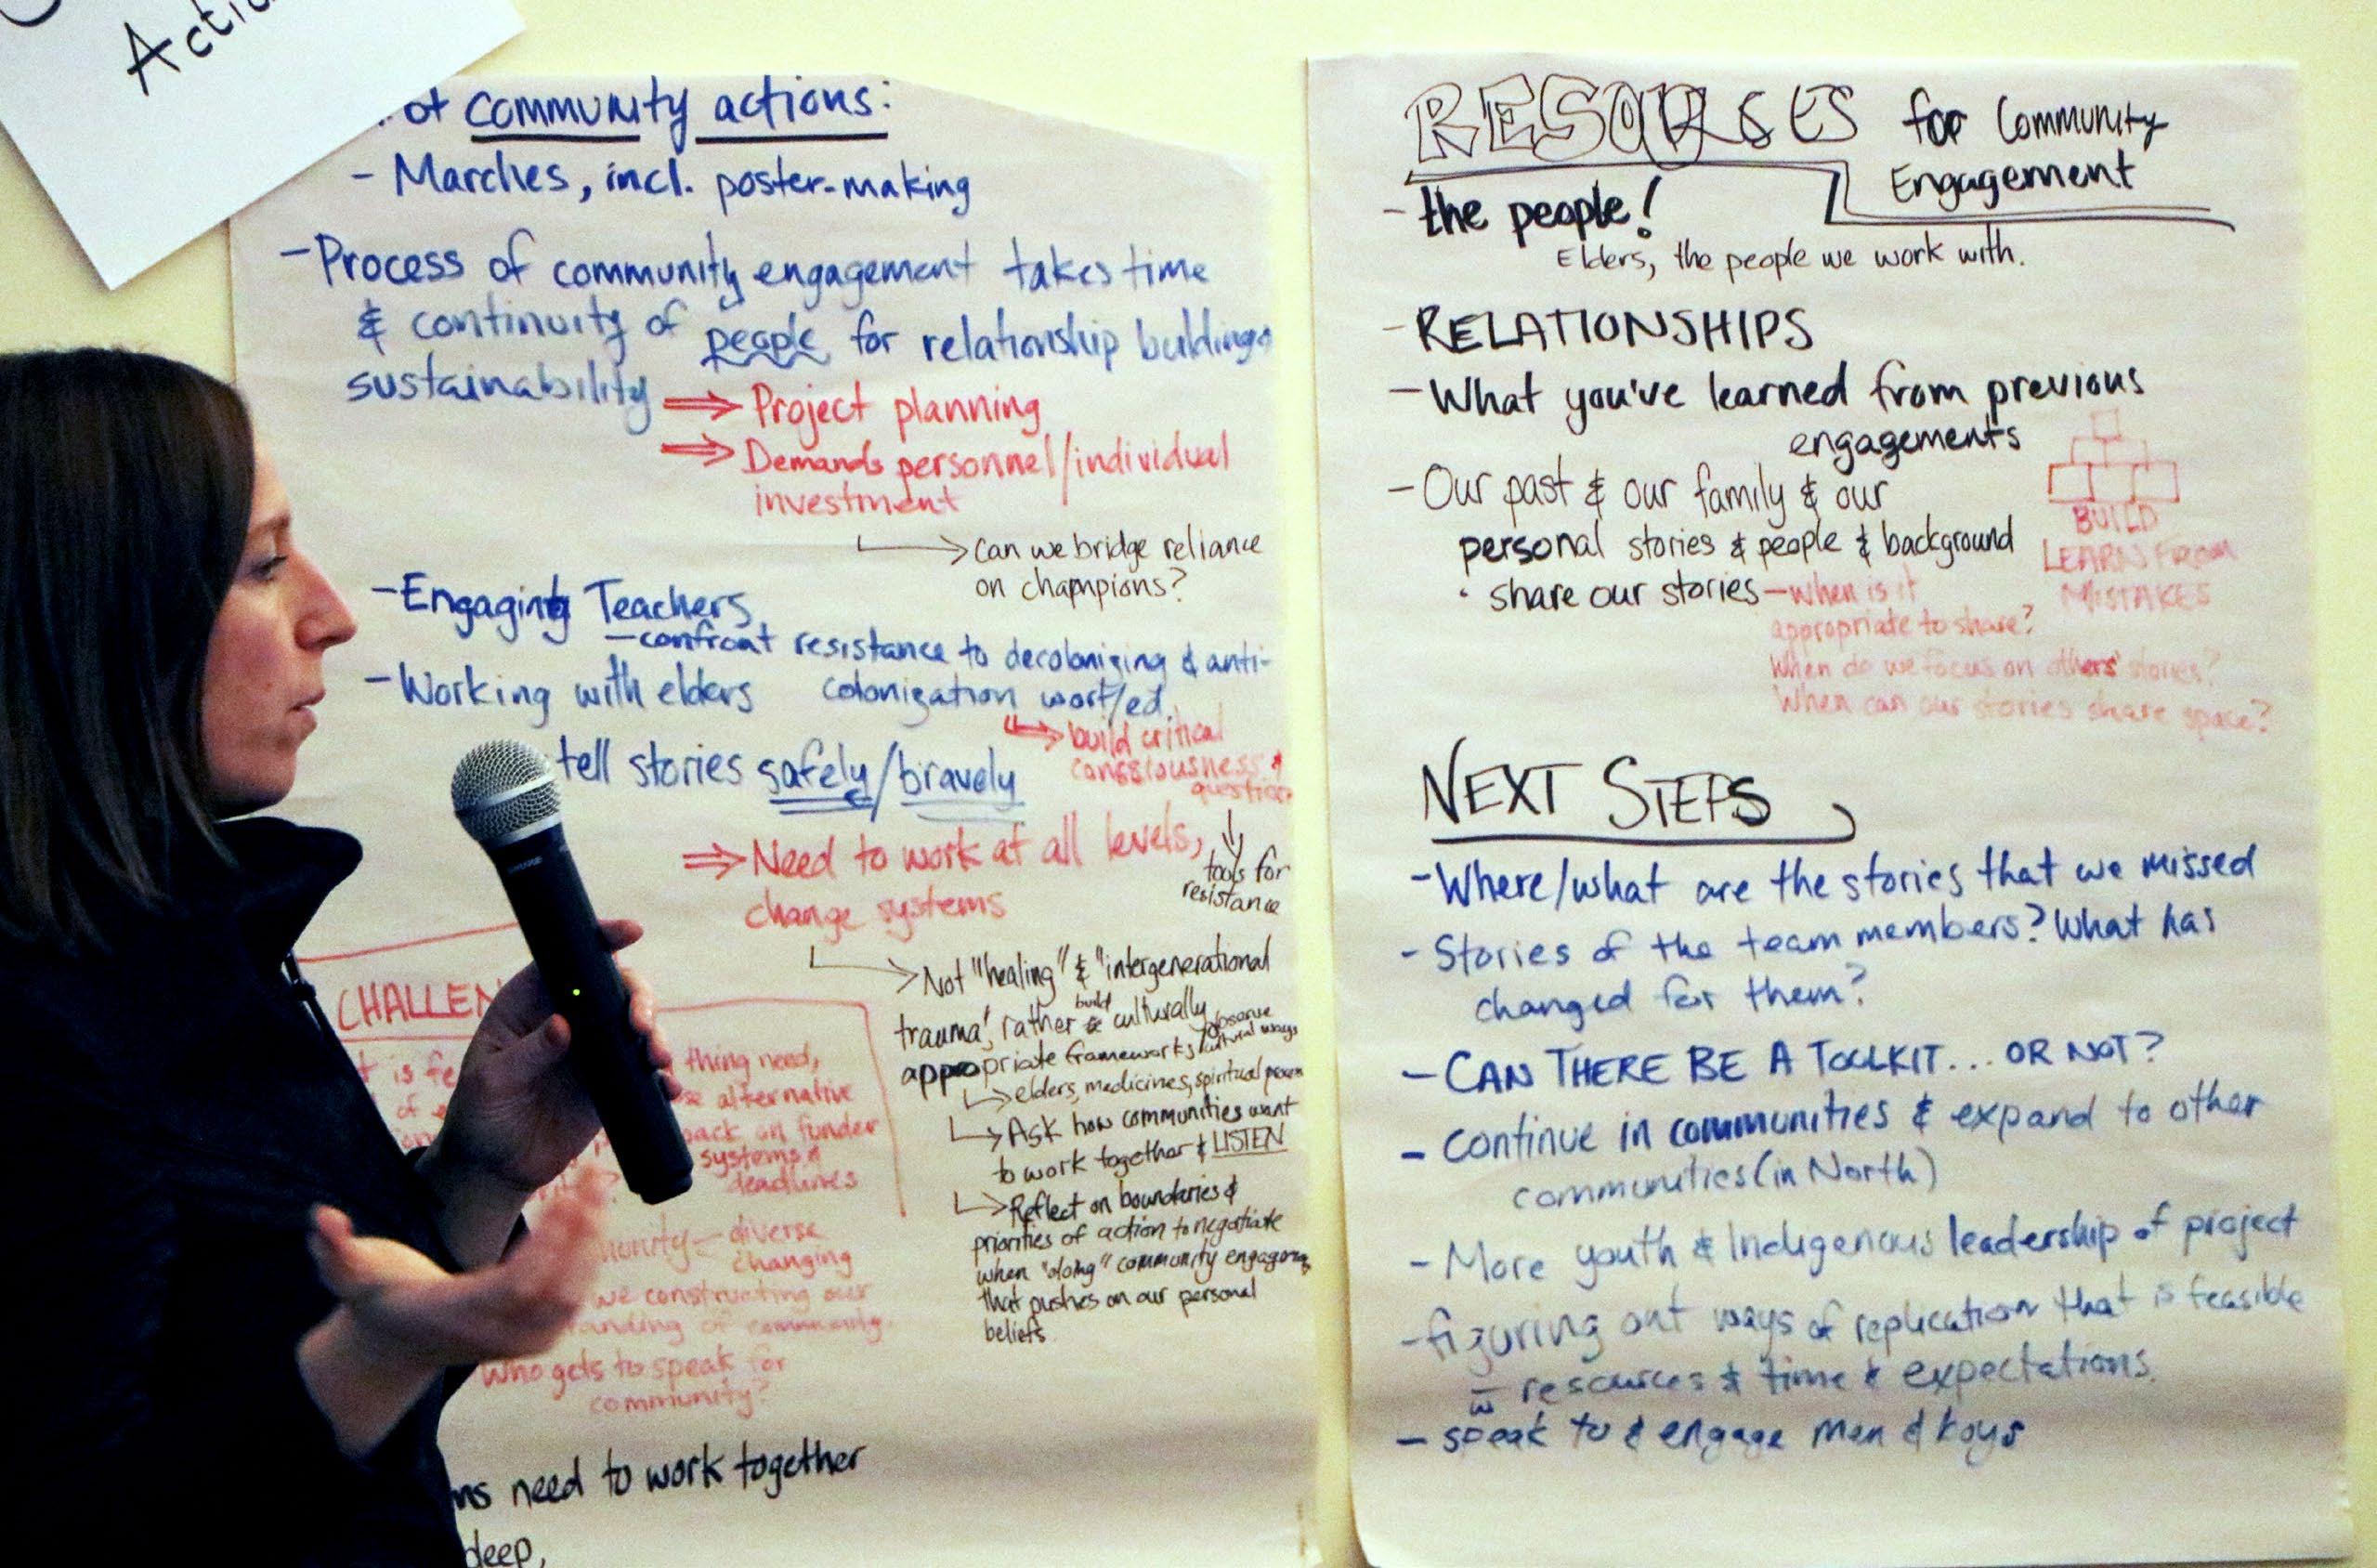 Acti
of community actions:
- Marches, incl. poster-making
- Process of community engagement takes time
& continuity of people for relationship building &
sustainability ⇒ Project planning
⇒ Demands personnel/individual
investment
→ Can we bridge reliance
on champions?
- Engaging Teachers
- confront resistance to decolonizing & anti-
colonization work/ed.
- Working with elders
↳ build critical
consciousness &
question
↓
tools for
resistance
tell stories safely/bravely
⇒ Need to work at all levels,
change systems
→ Not "healing" & "intergenerational
trauma", rather build culturally
appropriate frameworks/
cultural ways
↳ elders, medicines, spiritual
↳ Ask how communities want
to work together & LISTEN
↳ Reflect on boundaries &
priorities of action to negotiate
when "doing" community engaging
that pushes on our personal
beliefs
CHALLEN
is fe
of
thing need,
alternative
back on funder
systems &
deadlines
munity - diverse
changing
we constructing our
anding of community.
Who gets to speak for
community?
ns need to work together
deep,
RESOURSES for Community
Engagement
- the people!
Elders, the people we work with.
- RELATIONSHIPS
- What you've learned from previous
engagements
- Our past & our family & our
personal stories & people & background
• share our stories - when is it
appropriate to share?
When do we focus on others' stories?
When can our stories share space?
BUILD
LEARN FROM
MISTAKES
NEXT STEPS
- Where/what are the stories that we missed
- Stories of the team members? What has
changed for them?
- CAN THERE BE A TOOLKIT... OR NOT?
- Continue in communities & expand to other
communities (in North)
- More youth & Indigenous leadership of project
- figuring out ways of replication that is feasible
w̅ resources & time & expectations.
- speak to & engage men & boys